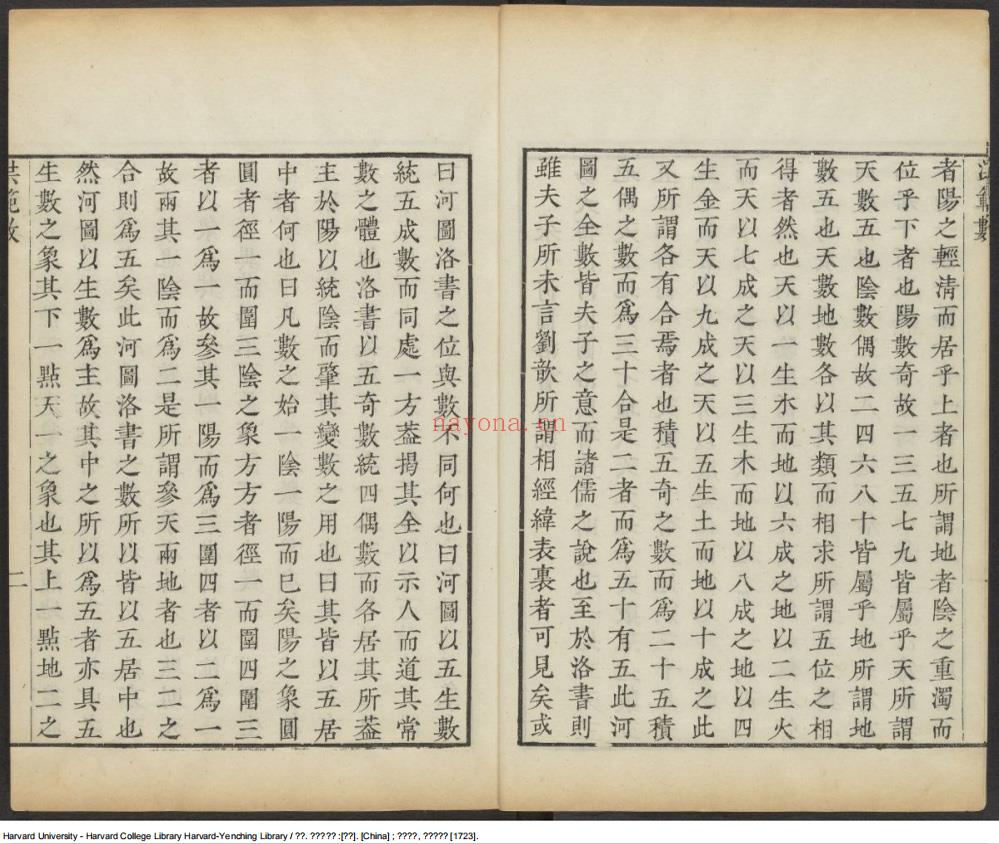 者陽之輕淸而居乎上者也所謂地者陰之重濁而
位乎下者也陽數奇故一三五七九皆屬乎天所謂
天數五也陰數偶故二四六八十皆屬乎地所謂地
數五也天數地數各以其類而相求所謂五位之相
得者然也天以一生水而地以六成之地以二生火
而天以七成之天以三生木而地以八成之地以四
生金而天以九成之天以五生土而地以十成之此
又所謂各有合焉者也積五奇之數而爲二十五積
五偶之數而爲三十合是二者而爲五十有五此河
圖之全數皆夫子之意而諸儒之說也至於洛書則
雖夫子所未言劉歆所謂相經緯表裏者可見矣或
曰河圖洛書之位與數不同何也曰河圖以五生數
統五成數而同處一方葢揭其全以示人而道其常
數之體也洛書以五奇數統四偶數而各居其所葢
主於陽以統陰而肇其變數之用也曰其皆以五居
中者何也曰凡數之始一陰一陽而已矣陽之象圓
圓者徑一而圍三陰之象方方者徑一而圍四圍三
者以一爲一故參其一陽而爲三圍四者以二爲一
故兩其一陰而爲二是所謂參天兩地者也三二之
合則爲五矣此河圖洛書之數所以皆以五居中也
然河圖以生數爲主故其中之所以爲五者亦具五
生數之象其下一點天一之象也其上一點地二之
洪範數
二
nayona.cn
Harvard University - Harvard College Library Harvard-Yenching Library / ??. ????? :[??]. [China] ; ????, ????? [1723].